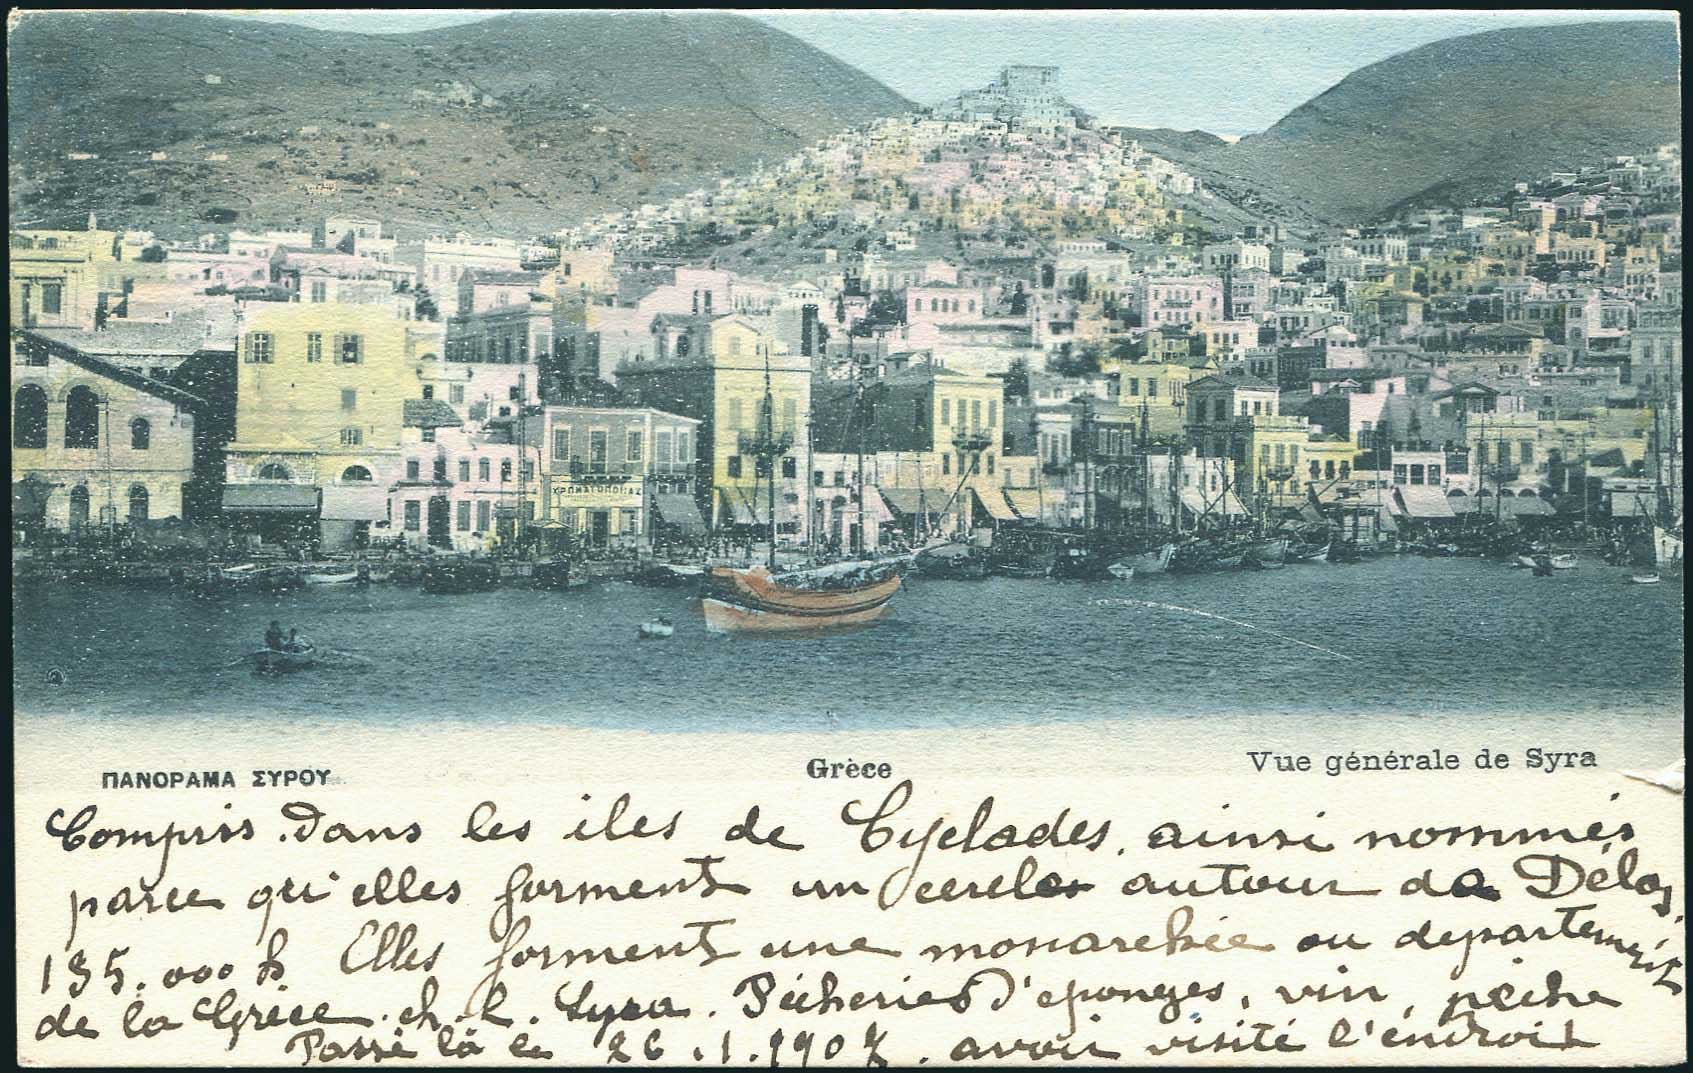 ΧΡΩΜΑΤΟΠΟΙΪΑΣ
ΠΑΝΟΡΑΜΑ ΣΥΡΟΥ
Grèce
Vue générale de Syra
Compris dans les iles de Cyclades, ainsi nommés
parce qu'elles forment un cercle autour de Délos.
135.000 h Elles forment une monarchie ou departement
de la Grèce. ch. l. Syra. Pêcheries d'eponges, vin, pêche
Passé là le 26.1.1907. avoir visité l'éndroit